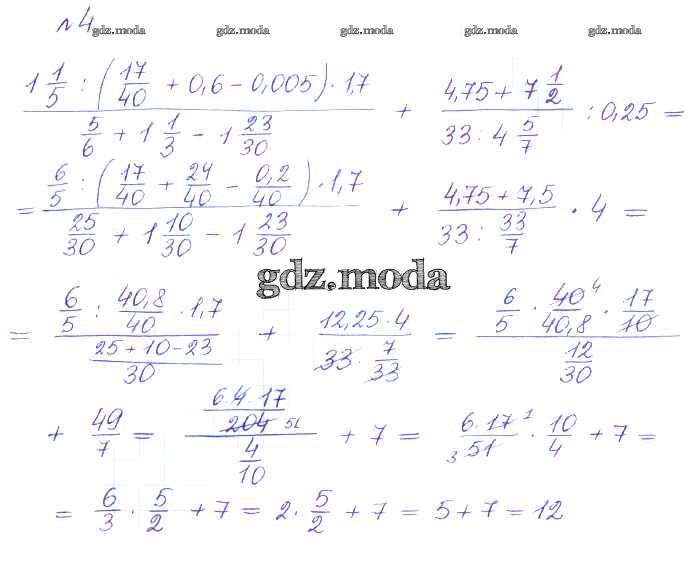 №4
gdz.moda gdz.moda gdz.moda gdz.moda
1 1/5 : (17/40 + 0,6 - 0,005) · 1,7 / (5/6 + 1 1/3 - 1 23/30) + (4,75 + 7 1/2) / (33 : 4 5/7) : 0,25 =
= 6/5 : (17/40 + 24/40 - 0,2/40) · 1,7 / (25/30 + 1 10/30 - 1 23/30) + (4,75 + 7,5) / (33 : 33/7) · 4 =
gdz.moda
= 6/5 : 40,8/40 · 1,7 / ((25 + 10 - 23)/30) + 12,25 · 4 / (33 · 7/33) = 6/5 · 40 4/40,8 · 17/10 / (12/30)
+ 49/7 = (6·4·17 / 204 51) / (4/10) + 7 = 6·17 1 / 3 51 · 10/4 + 7 =
= 6/3 · 5/2 + 7 = 2 · 5/2 + 7 = 5 + 7 = 12